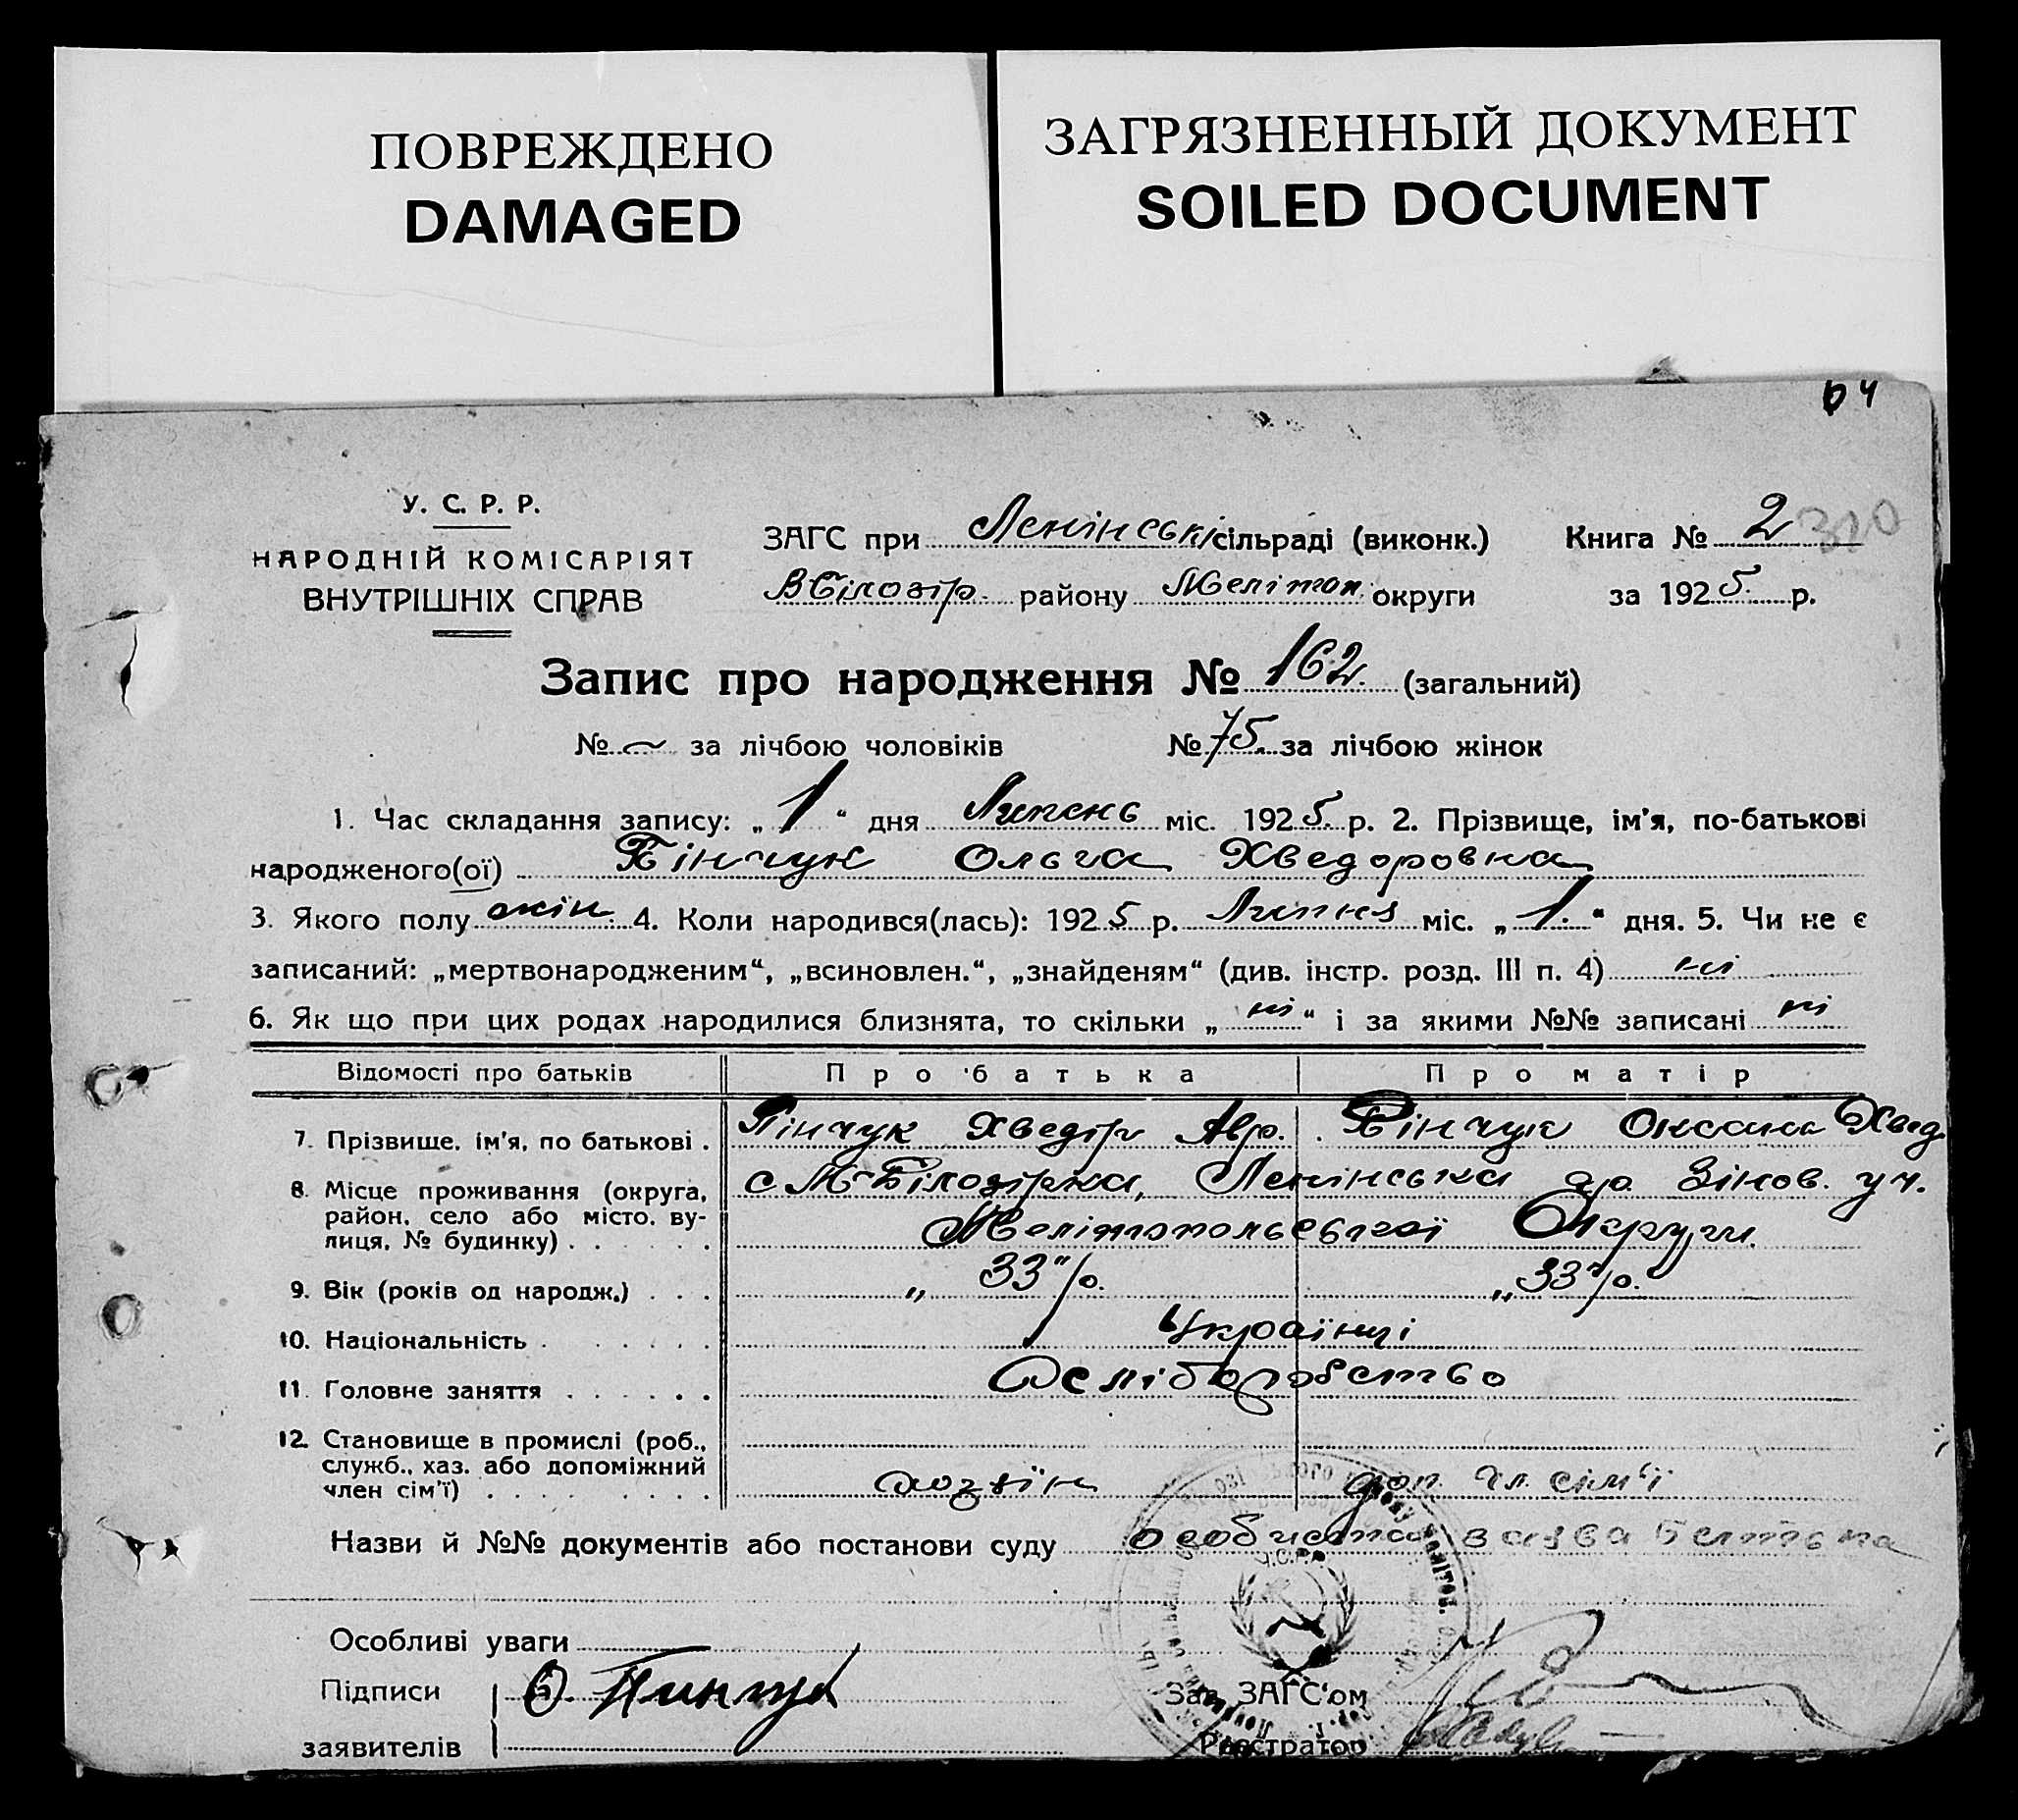 ПОВРЕЖДЕНО
DAMAGED
ЗАГРЯЗНЕННЫЙ ДОКУМЕНТ
SOILED DOCUMENT
У. С. Р. Р.
НАРОДНІЙ КОМІСАРІЯТ
ВНУТРІШНІХ СПРАВ
ЗАГС при Ленінські сільраді (виконк.)
ВБілозір. району Мелітоп. округи
Книга № 2 310
за 1925 р.
Запис про народження № 162. (загальний)
№ — за лічбою чоловіків № 75. за лічбою жінок
1. Час складання запису: „ 1 “ дня Липень міс. 1925. р. 2. Прізвище, ім'я, по-батькові
народженого(ої) Пінчук Ольга Хведоровна
3. Якого полу жін. 4. Коли народився(лась): 1925 р. Липня міс. „ 1. “ дня. 5. Чи не є
записаний: „мертвонародженим“, „всиновлен.“, „знайденям“ (див. інстр. розд. III п. 4) ні
6. Як що при цих родах народилися близнята, то скільки „ ні “ і за якими №№ записані ні
Відомості про батьків Про батька Про матір
7. Прізвище, ім'я, по батькові . Пінчук Хведір Авр. Пінчук Оксана Хвед.
8. Місце проживання (округа, с М-Білозірка, Ленінська др. Зінов. уч.
район, село або місто, ву-
лиця, № будинку) . . . . . . Мелітопольської Округи.
9. Вік (років од народж.) . . . „ 33 р. „ 33 р.
10. Національність . . . . . . Українці
11. Головне заняття . . . . . . Хліборобство
12. Становище в промислі (роб.,
служб., хаз. або допоміжний
член сім'ї) . . . . . . . . хозяїн доп. чл. сім'ї
Назви й №№ документів або постанови суду особиста заява батька
Особливі уваги
Підписи Ѳ. Пинчук Зав. ЗАГС'ом
заявителів Реєстратор